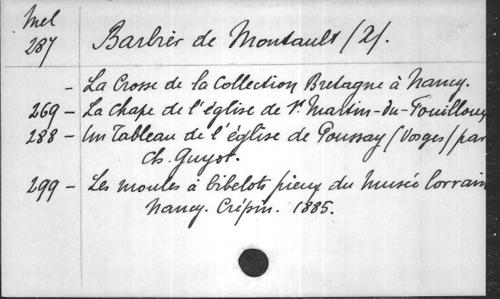 Mel
287 Barbier de Montault (2).
- La Crosse de la Collection Bretagne à Nancy.
269 - La chape de l'église de St Martin-du-Fouilloux
288 - Un Tableau de l'église de Poussay (Vosges) par
Ch. Guyot.
299 - Les moules à bibelots pieux du Musée lorrain
Nancy. Crépin. 1885.